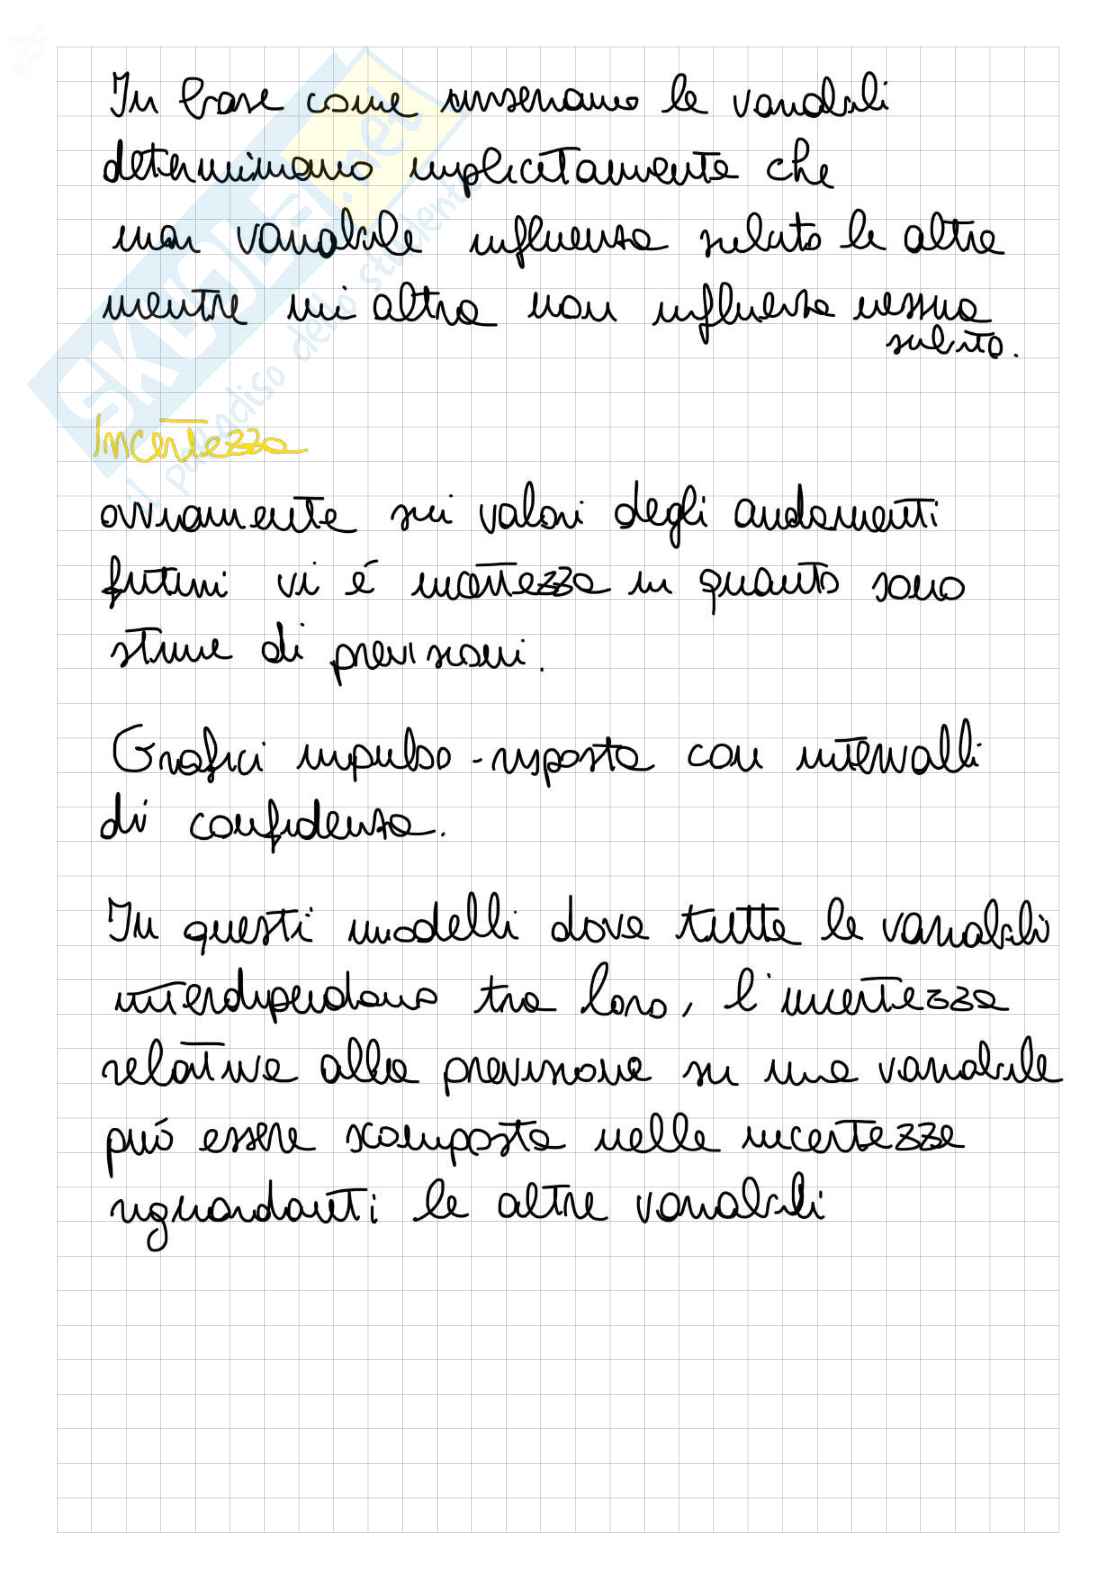 In base come inseriamo le variabili
determiniamo implicitamente che
una variabile influenza subito le altre
mentre un'altra non influenza nessuna
subito.
Incertezza
ovviamente sui valori degli andamenti
futuri vi é incertezza in quanto sono
stime di previsioni.
Grafici impulso-risposta con intervalli
di confidenza.
In questi modelli dove tutte le variabili
interdipendono tra loro, l'incertezza
relativa alla previsione su una variabile
può essere scomposta nelle incertezze
riguardanti le altre variabili
SKUOLA.net
il paradiso dello studente